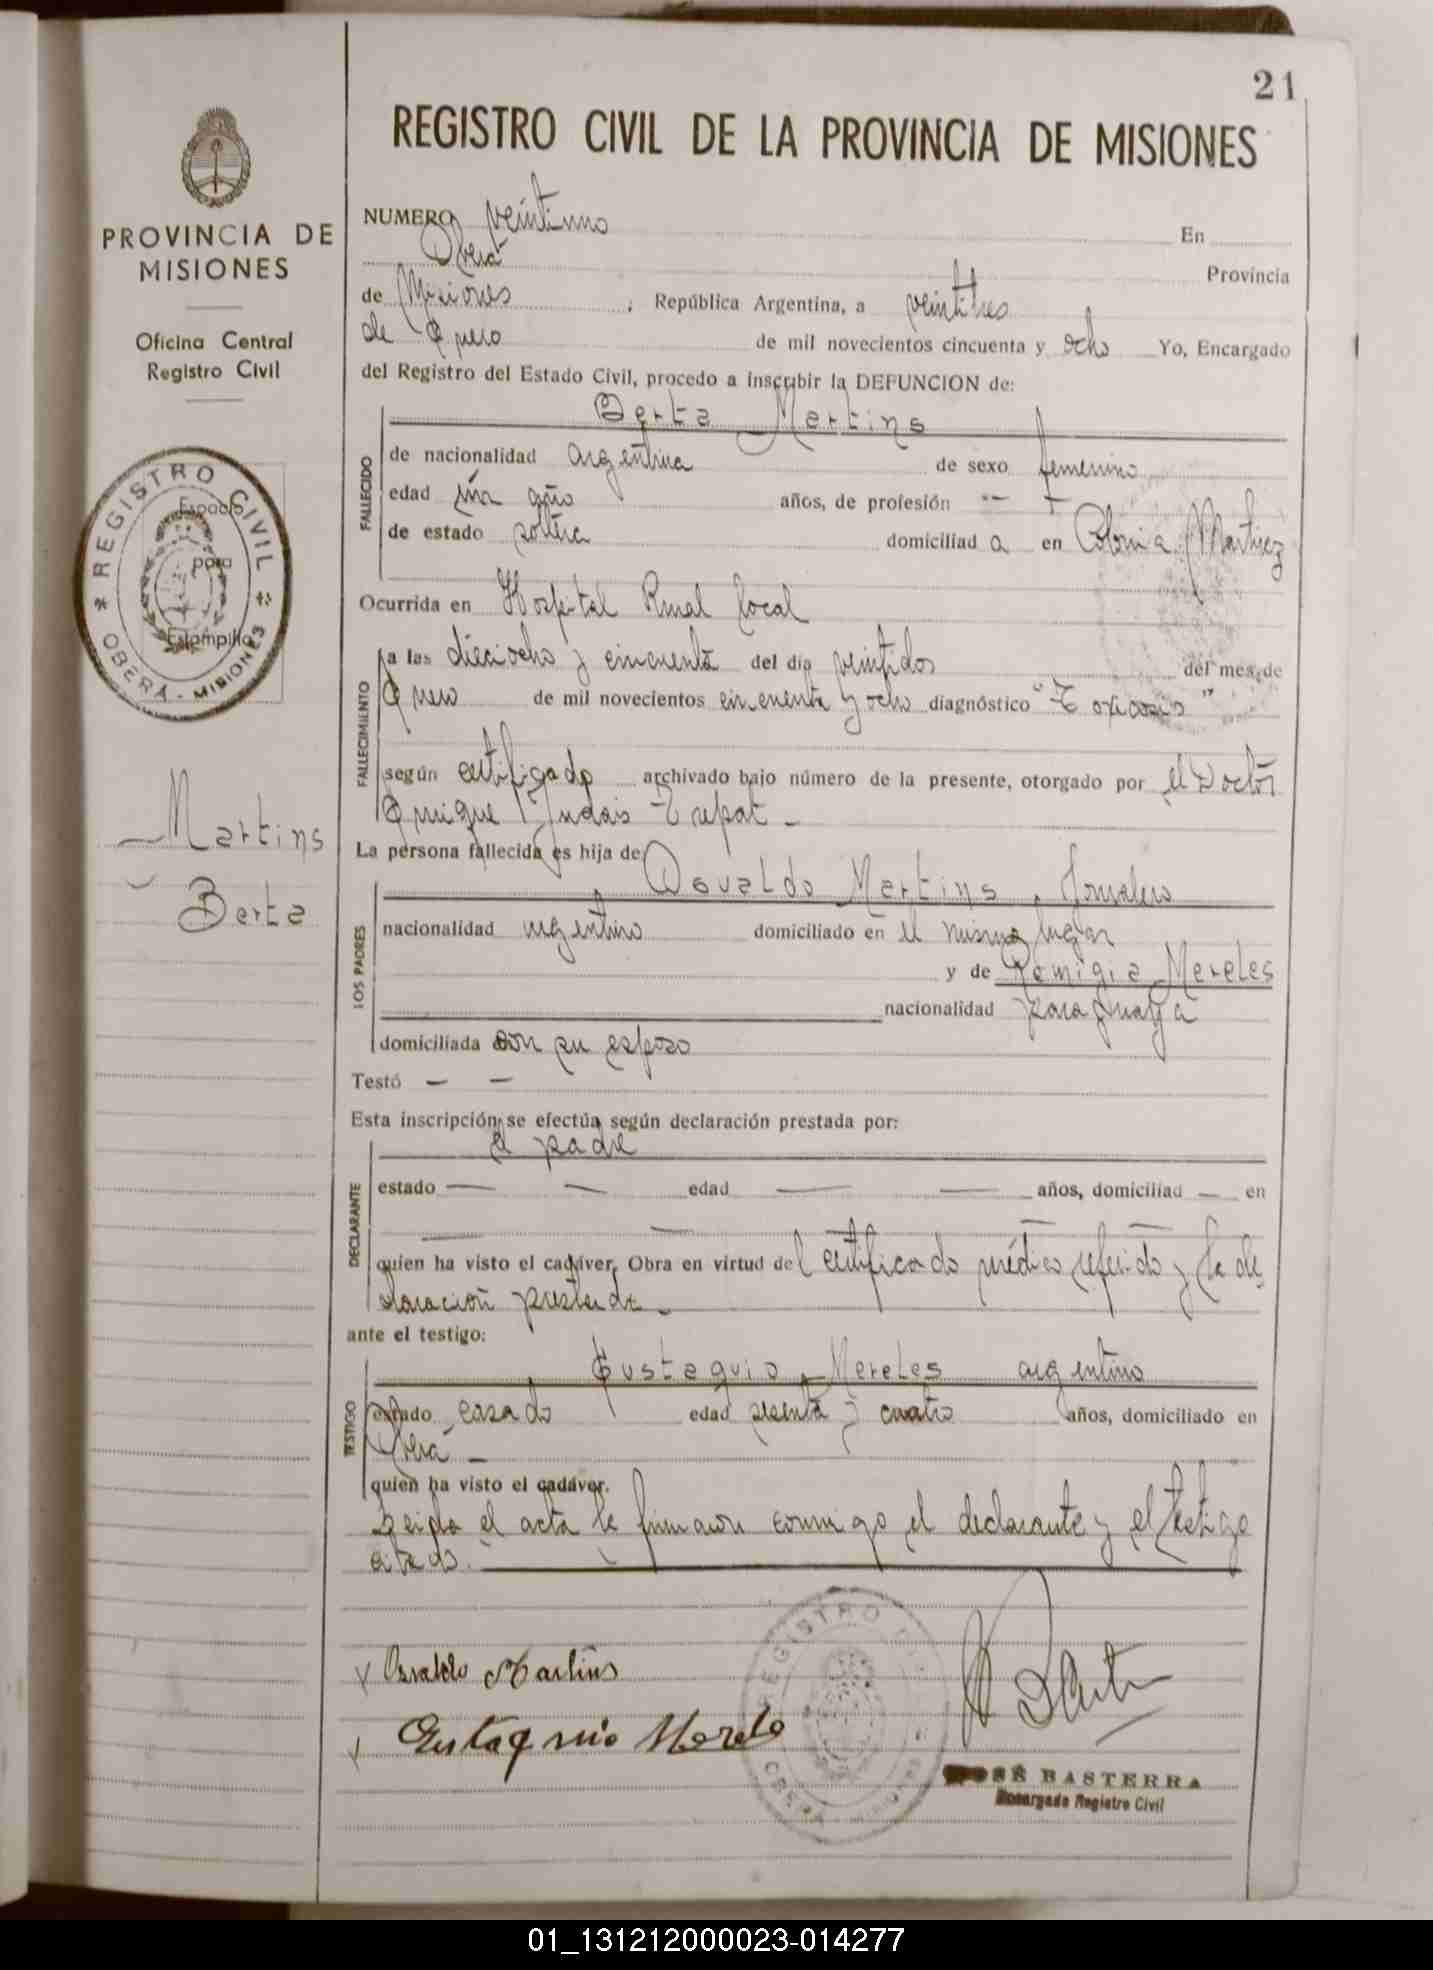 21
REGISTRO CIVIL DE LA PROVINCIA DE MISIONES
PROVINCIA DE
MISIONES
Oficina Central
Registro Civil
REGISTRO CIVIL
OBERÁ - MISIONES
Espacio
para
Estampilla
Martins
Berta
NUMERO veintiuno En
Oberá Provincia
de Misiones, República Argentina, a veintitres
de Enero de mil novecientos cincuenta y ocho Yo, Encargado
del Registro del Estado Civil, procedo a inscribir la DEFUNCION de:
Berta Martins
FALLECIDO
de nacionalidad argentina de sexo femenino
edad un año años, de profesión - -
de estado soltera domiciliad a en Colonia Martinez
Ocurrida en Hospital Rural local
FALLECIMIENTO
a las dieciocho y cincuenta del día veintidos del mes de
Enero de mil novecientos cincuenta y ocho diagnóstico "Toxicosis"
según certificado archivado bajo número de la presente, otorgado por el Doctor
Enrique Trepat -
La persona fallecida es hija de: Osvaldo Martins, jornalero
LOS PADRES
nacionalidad argentino domiciliado en el mismo lugar
y de Remigia Mereles
nacionalidad paraguaya
domiciliada con su esposo
Testó - -
Esta inscripción se efectúa según declaración prestada por:
el padre
DECLARANTE
estado — — edad — — años, domiciliad — en
— — —
quien ha visto el cadáver, Obra en virtud del certificado médico referido y la de
claración prestada -
ante el testigo:
Eustaquio Mereles argentino
TESTIGO
estado casado edad sesenta y cuatro años, domiciliado en
Oberá -
quien ha visto el cadáver.
Leida el acta la firmaron conmigo el declarante y el testigo
citado.
REGISTRO
OBERÁ - MISIONES
x Osvaldo Martins
x Eustaquio Merele
JOSÉ BASTERRA
Encargado Registro Civil
01_131212000023-014277